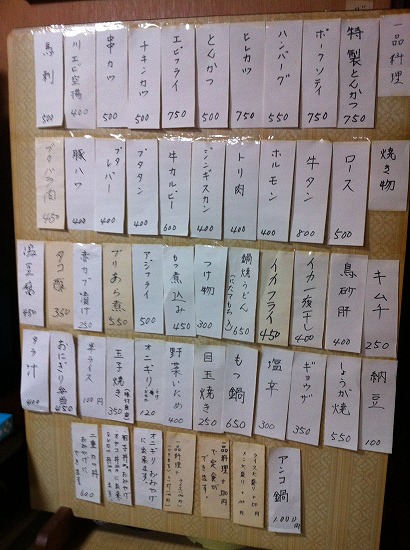 一品料理
特製とんかつ 750
ポークソティ 750
ハンバーグ 550
ヒレカツ 750
とんかつ 500
エビフライ 750
チキンカツ 500
串カツ 500
川エビ空揚 400
馬刺 500
焼き物
ロース 500
牛タン 800
ホルモン 400
トリ肉 400
ジンギスカン 400
牛カルビー 600
ブタタン 400
ブタレバー 400
豚ハツ 400
ブタバラ肉 450
キムチ 250
鳥砂肝 400
イカ一夜干し 450
イカフライ 450
鍋焼うどん 650
つけ物 300
もつ煮込み 450
アジフライ 500
ブリあら煮 550
赤カブ漬け 250
タコ酢 350
湯豆腐 450
納豆 100
しょうが焼 550
ギョウザ 350
塩辛 300
もつ鍋 650
目玉焼き 250
野菜いため 400
オニギリ 120
玉子焼き 350
半ライス 100円
おにぎり弁当 450
タラ汁 400
アンコ鍋 1,000円
一品料理+300円
で定食が
できます。
オニギリおみやげ
に出来ます。
おみやげ
600